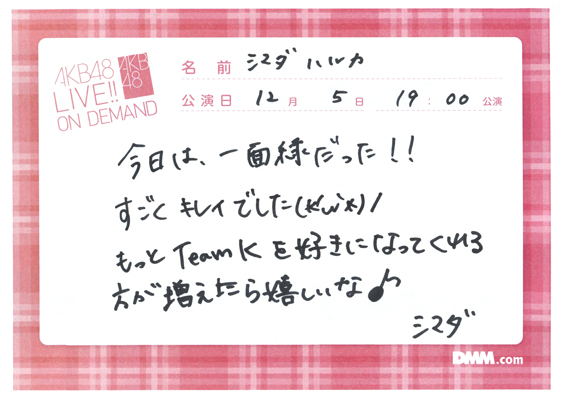 AKB48
LIVE!!
ON DEMAND
AKB
48
名前 シマダ ハルカ
公演日 12月 5日 19:00 公演
今日は、一面緑だった!!
すごく キレイでした(*'ω'*)ノ
もっと Team K を好きになってくれる
方が増えたら嬉しいな♪
シマダ
DMM.com